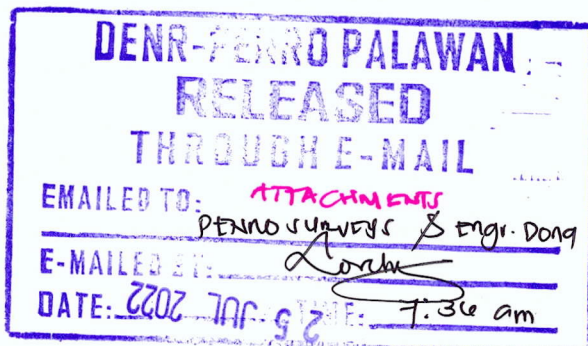 DENR-PENRO PALAWAN
RELEASED
THROUGH E-MAIL
EMAILED TO: ATTACHMENTS
PENRO SURVEYS & Engr. Dong
E-MAILED BY:
DATE: 25 JUL 2022 TIME: 7:36 am